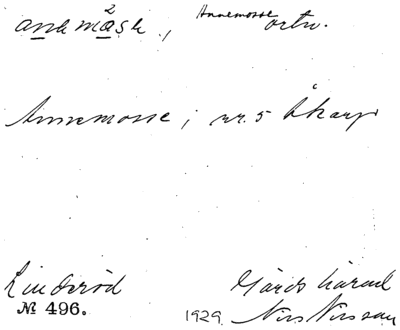 Annemosse ortn.
Annemosse i nr. 5 Åkarp
Linderöd Gärds härad
№ 496. 1929 Nils Nilsson